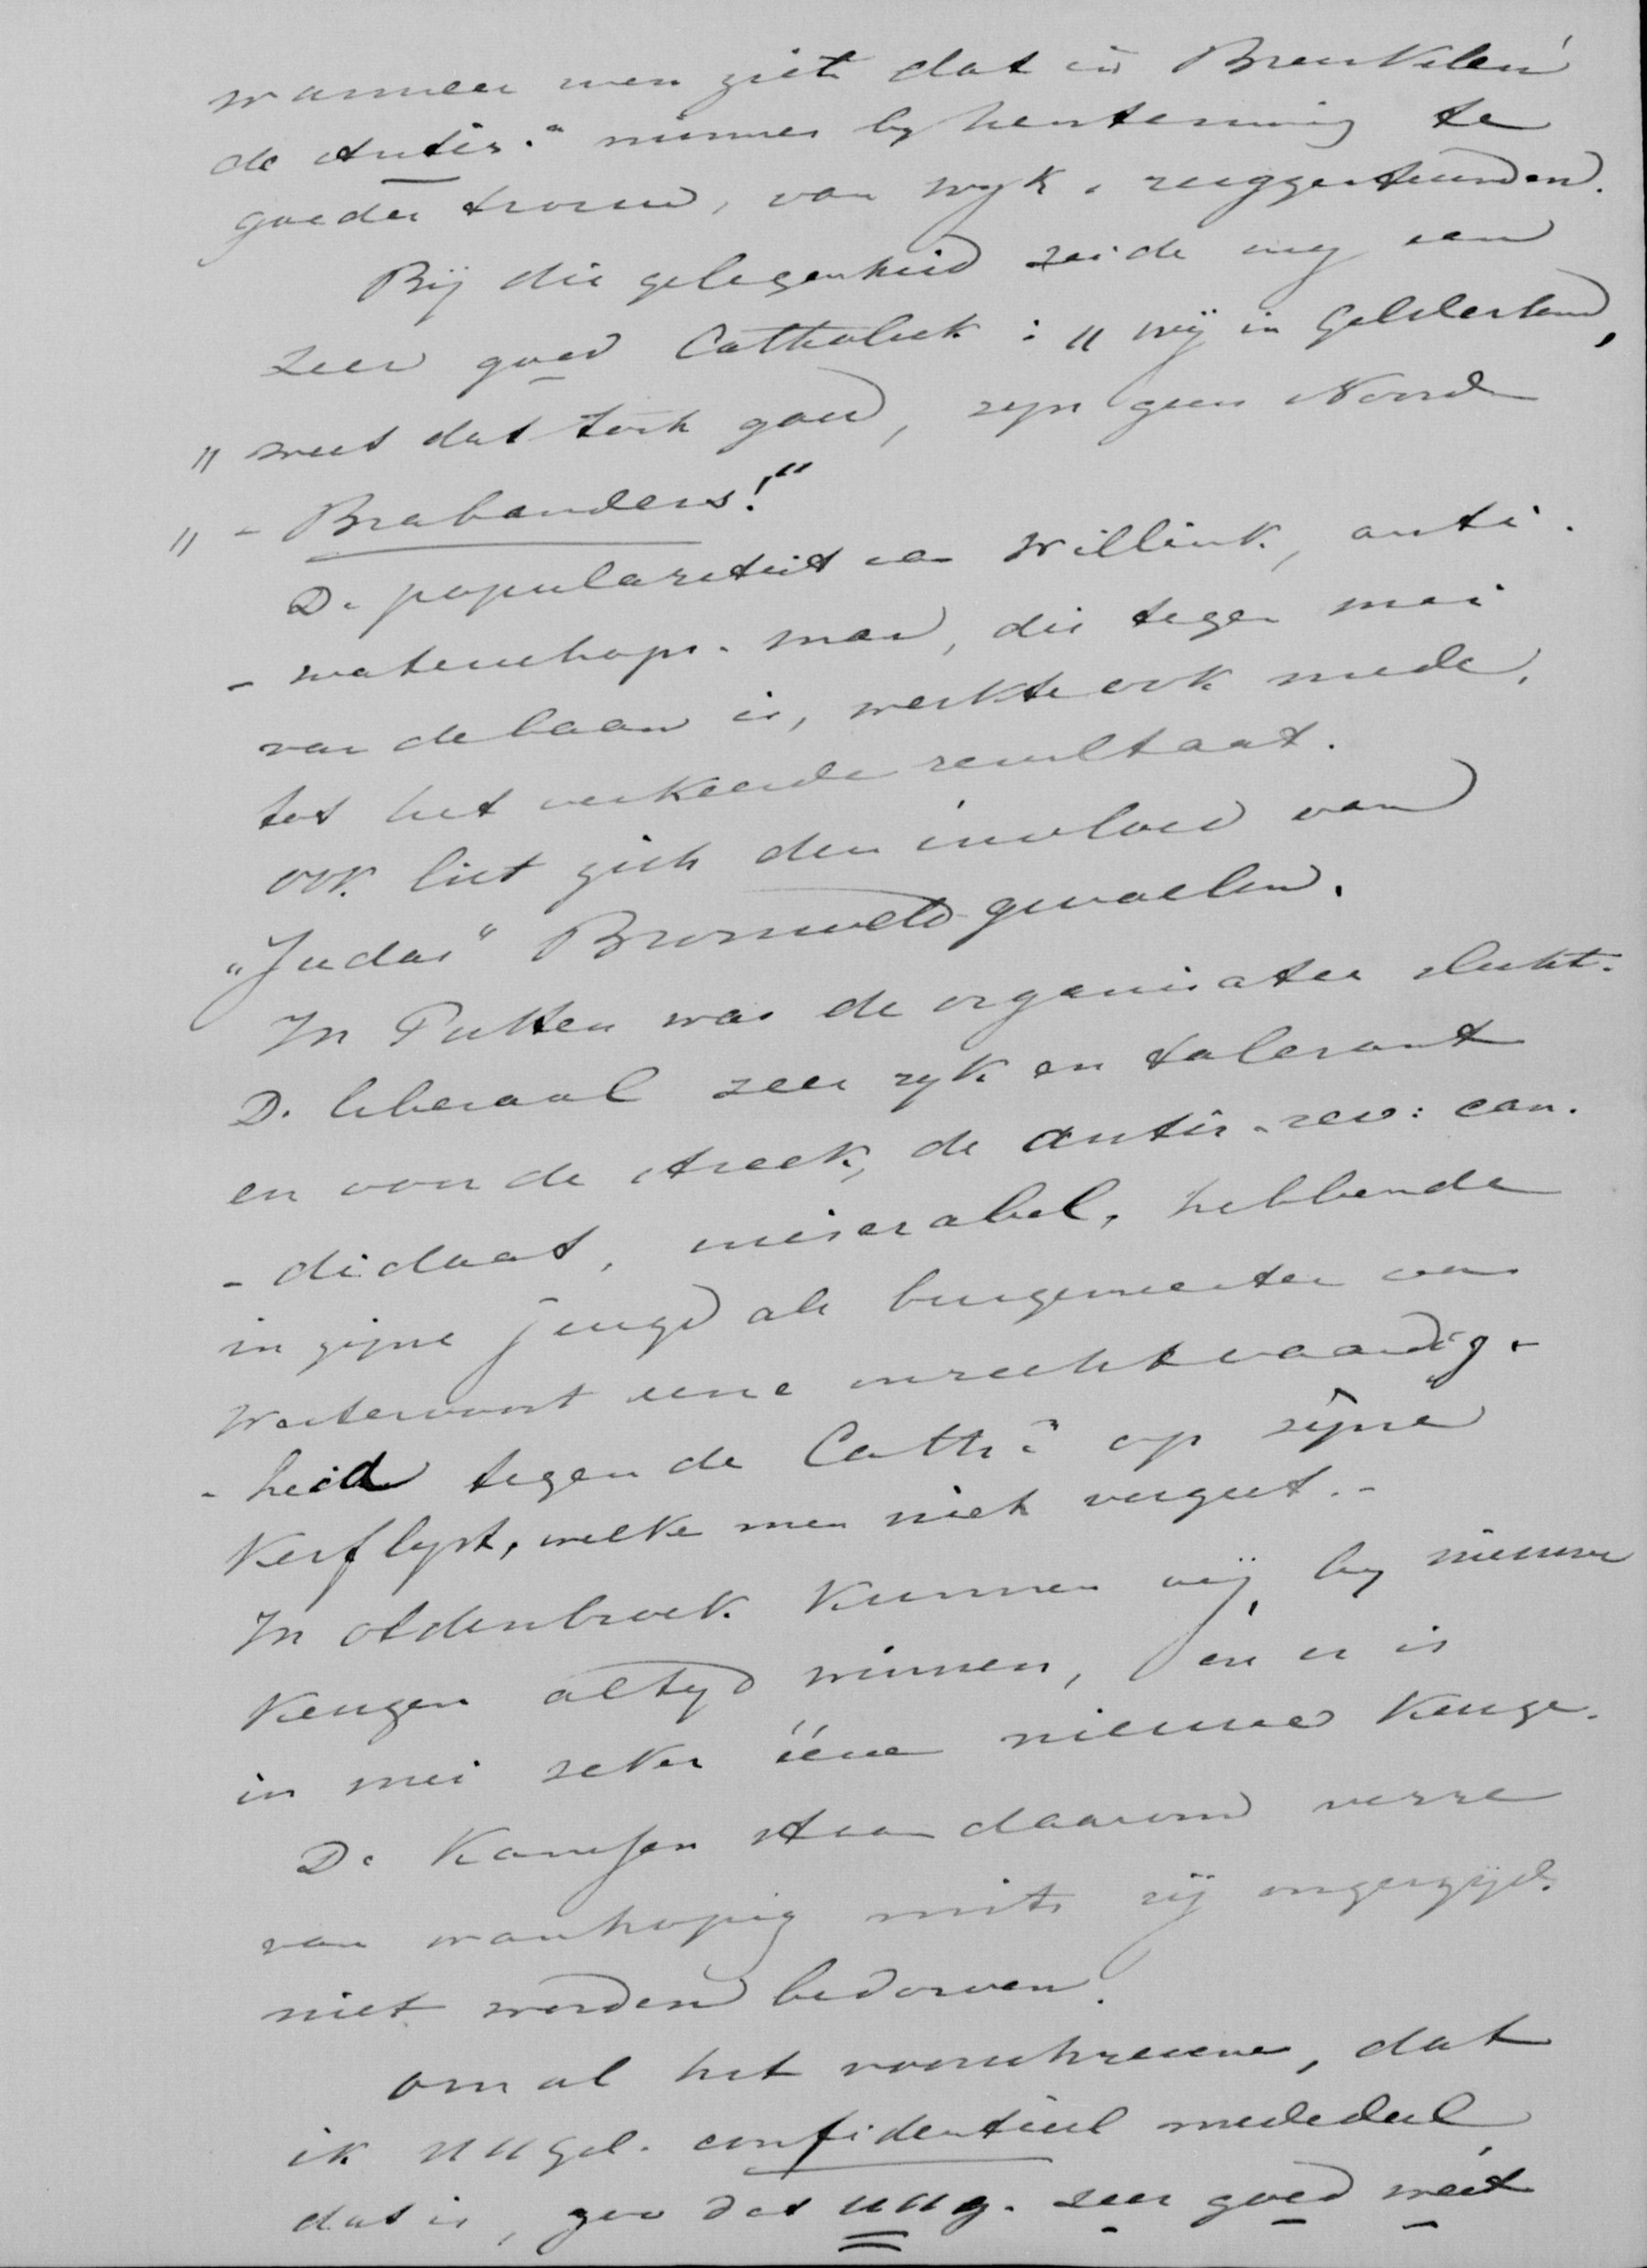 wanneer men ziet dat in Breukelen
de Antir.ⁿ nimmer by herstemming te
goeder trouw, van wyk, ruggesteunden.
Bij die gelegenheid zeide my een
zeer goed Catholiek : „ wij in Gelderland,
„ weet dat toch goed, zyn geen Noord
„ - Brabanders!"
De populariteit van Willink, anti-
- waterschaps-man, die tegen mei
van de baan is, werkte ook mede,
tot het verkeerde resultaat.
ook liet zich den invloed van
"Judas" Bronsveld gevoelen.
In Putten was de organisatie slecht.
De liberaal zeer ryk en tolerant
en voor de streek, de antir.-rev: can-
- didaat, miserabel, hebbende
in zijne jeugd als burgemeester van
Westervoort eene onrechtvaardig-
- heid tegen de Cath:ⁿ op zijne
Kerflyst, welke men niet vergeet. -
In oldenbroek kunnen wij, by nieuwe
Keuzen altyd winnen, en er is
in mei zeker ééne nieuwe Keuze.
De Kansen staan daarom verre
van wanhopig mits zij ongerzijds
niet worden bedorven.
om al het voorschreven, dat
ik UUgel. confidentieel mededeel
dat is, zoo dat UUg. zeer goed weet